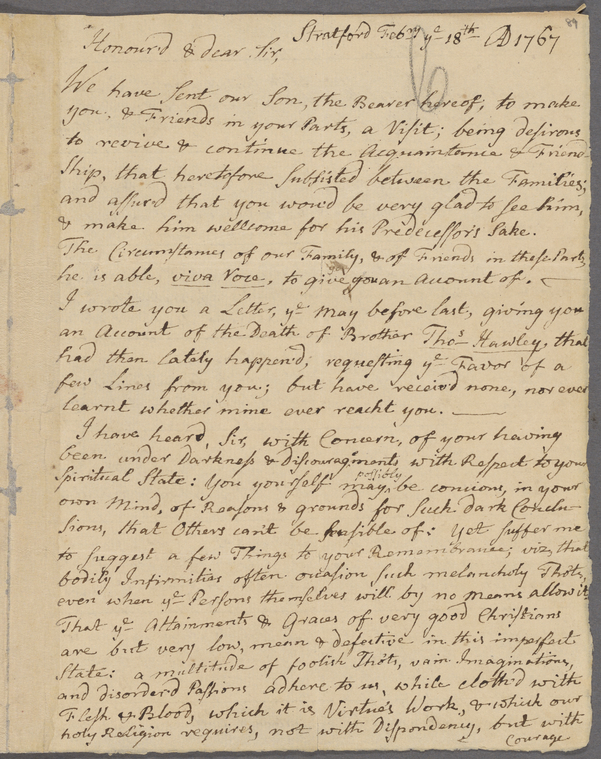 89
Stratford Feb.ry ye 18th AD 1767
Honour'd & dear Sir,
We have sent our Son, the Bearer hereof, to make
you, & Friends in your Parts, a Visit; being desirous
to revive & continue the Acquaintance & Friend
Ship, that heretofore subsisted between the Families;
and assur'd that you wou'd be very glad to see him,
& make him wellcome for his Predecessors Sake.
The Circumstances of our Family, & of Friends in these Parts,
he is able, viva voce, to give you an Account of. —
I wrote you a Letter, ye May before last, giving you
an Account of the Death of Brother Thos Hawley, that
had then lately happend; requesting ye Favor of a
few Lines from you; but have receiv'd none, nor ever
learnt whether mine ever reacht you. —
I have heard, Sir, with Concern, of your having
been under Darkness & Discouragments with Respect to your
Spiritual State: you yourself possibly may be concious, in your
own Mind, of Reasons & grounds for such dark Conclu
sions, that Others can't be sensible of: yet suffer me
to suggest a few Things to your Remembrance; viz, that
bodily Infirmities often occasion such melancholy Thôts,
even when ye Persons themselves will by no means allow it:
That ye Attainments & Graces of very good Christians
are but very low, mean & defective in this imperfect
State: a multitude of foolish Thôts, vain Imaginations,
and disorderd Passions adhere to us, while cloth'd with
Flesh & Blood, which it is Virtue's Work, & which our
holy Religion requires, not with Dispondency, but with
Courage